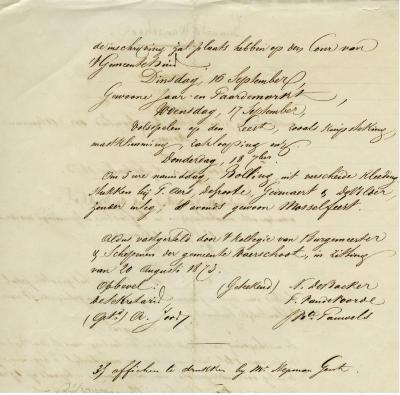 de inschrijving zal plaats hebben op den Cour van
't Gemeentehuis.
Dinsdag, 16 September,
Gewoone Jaar- en Paardemarkt,
Woensdag, 17 September,
Volspelen op den zooals Ringsteking,
mastklimming, zaklooping enz.
Donderdag, 18 7ber
Om 5 ure namiddag, Bolling, uit verscheide Kleeding
stukken bij Geirnaert & De
zonder inleg; 's avonds gewoon Mosselfeest.
Aldus vastgesteld door 't kollegie van Burgemeester
& Schepenen der gemeente Waerschoot, in zitting
van 20 Augusti 1873.
Op bevel: (Geteekend) De Backer
De Sekretaris F. Van de Voorde
(Get.) A. Pauwels
35 affichen te drukken by Mr. Gent.